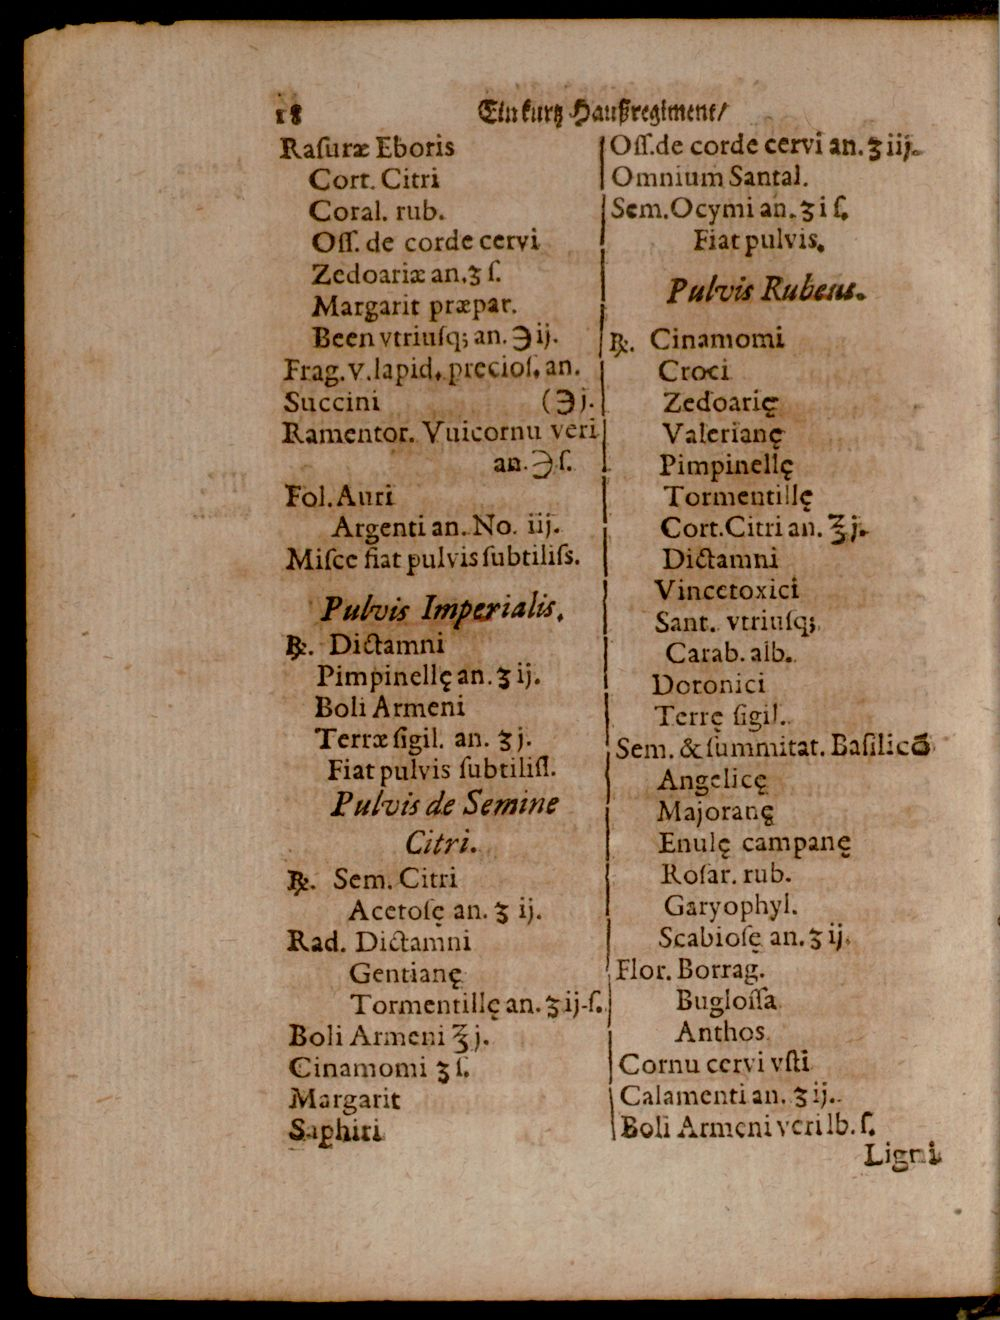 18 Ein kurtz Haußregiment/
Raſuræ Eboris
Cort. Citri
Coral. rub.
Oſſ. de corde cervi
Zedoariæ an. ʒ ſ.
Margarit præpar.
Been vtriuſq; an. ℈ ij.
Frag. v. lapid. precioſ. an.
Succini (℈ j.
Ramentor. Vuicornu veri
an. ℈ ſ.
Fol. Auri
Argenti an. No. iij.
Miſce fiat pulvis ſubtiliſs.
Pulvis Imperialis.
℞. Dictamni
Pimpinellę an. ʒ ij.
Boli Armeni
Terræ ſigil. an. ʒ j.
Fiat pulvis ſubtiliſſ.
Pulvis de Semine
Citri.
℞. Sem. Citri
Acetoſę an. ʒ ij.
Rad. Dictamni
Gentianę
Tormentillę an. ʒ ij-ſ.
Boli Armeni ℥ j.
Cinamomi ʒ ſ.
Margarit
Saphiri
Oſſ. de corde cervi an. ʒ iij.
Omnium Santal.
Sem. Ocymi an. ʒ i ſ.
Fiat pulvis.
Pulvis Rubeus.
℞. Cinamomi
Croci
Zedoarię
Valerianę
Pimpinellę
Tormentillę
Cort. Citri an. ℥ j.
Dictamni
Vincetoxici
Sant. vtriuſq;
Carab. alb.
Doronici
Terrę ſigil.
Sem. & ſummitat. Baſilicō
Angelicę
Majoranę
Enulę campanę
Roſar. rub.
Garyophyl.
Scabioſę an. ʒ ij.
Flor. Borrag.
Bugloſſa
Anthos
Cornu cervi vſti
Calamenti an. ʒ ij.
Boli Armeni veri lb. ſ.
Ligni